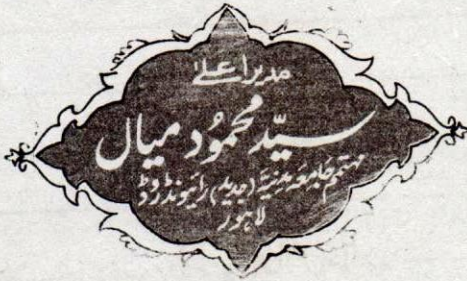 مدیر اعلیٰ
سیّد محمود میاں
مہتمم جامعہ مدنیہ (جدید) رائیونڈ روڈ
لاہور